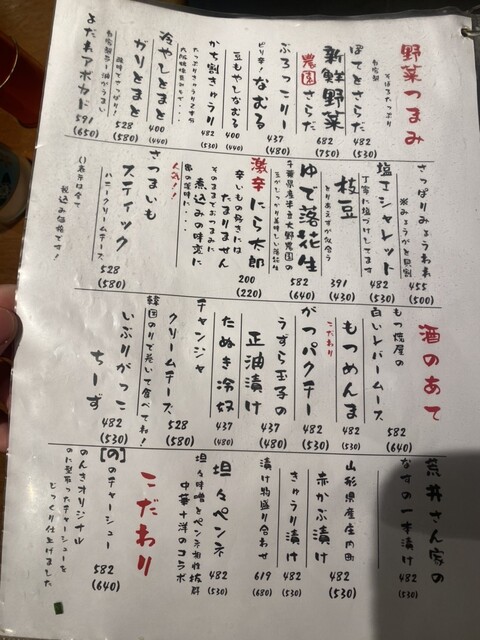 野菜つまみ
ぽてとさらだ
そぼろたっぷり
482
(530)
農園
新鮮野菜
さらだ
682
(750)
ぶろっこりー
437
(480)
ピリ辛!
なむる
豆もやしなむる
400
(440)
かち割きゅうり
482
(530)
冷やしとまと
400
(440)
ガリとまと
528
(580)
よだれアボカド
591
(650)
さっぱりみょうわれ
※みょうがと貝割
455
(500)
塩エシャレット
丁寧に塩づけしてます
482
(530)
枝豆
とりあえずが似合う
391
(430)
ゆで落花生
582
(640)
激辛にら太郎
辛いもの好きには
たまりません
そのままおつまみに
煮込みの味変に
200
(220)
人気!!
さつまいも
スティック
ハニークリームチーズ
528
(580)
()表示は全て
税込み価格です!
酒のあて
もつ焼屋の
白いレバームース
582
(640)
こだわり
もつめんま
482
(530)
がつパクチー
482
(530)
うずら玉子の
正油漬け
437
(480)
たぬき冷奴
437
(480)
チャンジャ
クリームチーズ
韓国のりで巻いて食べてね!
528
(580)
いぶりがっこ
ちーず
482
(530)
荒井さん家の
なすの一本漬け
482
(530)
山形県産庄内町
赤かぶ漬け
482
(530)
きゅうり漬け
482
(530)
漬け物盛り合わせ
619
(680)
坦々ペンネ
坦々味噌とペンネ相性抜群
中華+洋のコラボ
482
(530)
こだわり
[の]のチャーシュー
582
(640)
のんきオリジナル
のに型どったチャーシューを
じっくり仕上げました